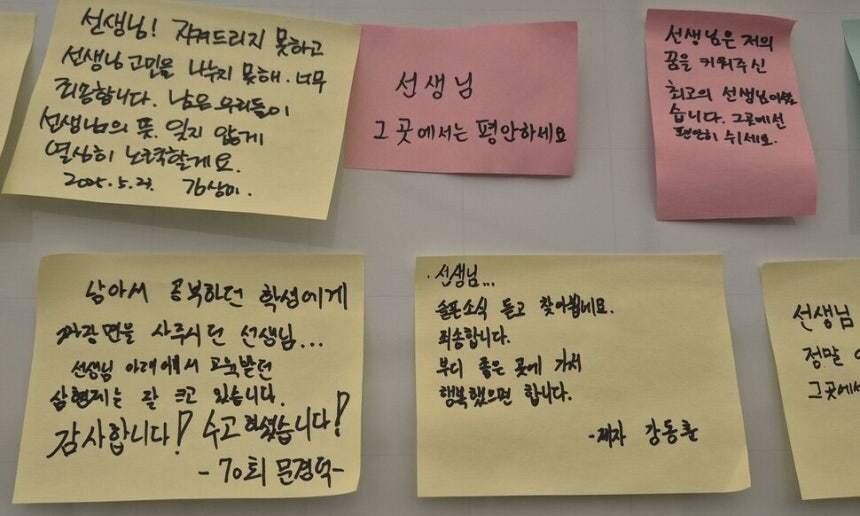 선생님! 지켜드리지 못하고
선생님 고민을 나누지 못해. 너무
죄송합니다. 남은 우리들이
선생님의 뜻. 잊지 않게
열심히 노력할게요.
2025.5.23.
선생님
그 곳에서는 평안하세요
선생님은 저의
꿈을 키워주신
최고의 선생님이셨
습니다. 그곳에선
편안히 쉬세요.
남아서 공부하던 학생에게
짜장면을 사주시던 선생님...
선생님 아래에서 교육받던
삼형제는 잘 크고 있습니다.
감사합니다! 수고하셨습니다!
-70회 문경덕-
선생님...
슬픈소식 듣고 찾아뵙네요.
죄송합니다.
부디 좋은 곳에 가서
행복했으면 합니다.
-제자 강동훈
선생님
정말
그곳에서